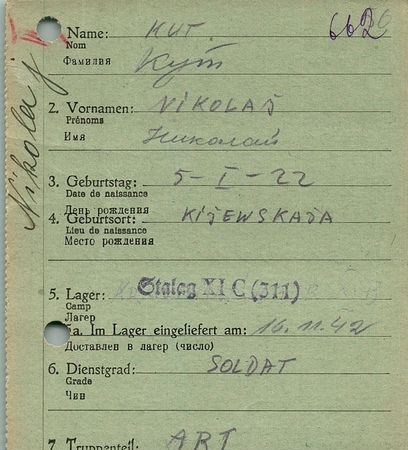 Nikolaj
Name: KUT.
Nom
Фамилия Кут
662
2. Vornamen: NIKOLAJ
Prénoms
Имя Николай
3. Geburtstag: 5-I-22
Date de naissance
День рождения
4. Geburtsort: KIJEWSKAJA
Lieu de naissance
Место рождения
5. Lager: Stalag XI C (311)
Camp
Лагер
5a. Im Lager eingeliefert am: 16.11.42
Доставлен в лагер (число)
6. Dienstgrad: SOLDAT
Grade
Чин
7. Truppenteil: ART